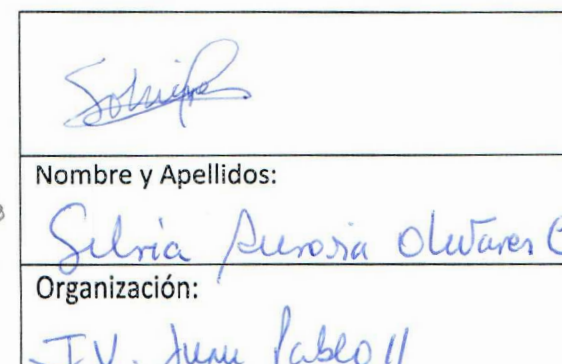 Nombre y Apellidos:
Silvia Aurora Olivares
Organización:
I.V. Juan Pablo II